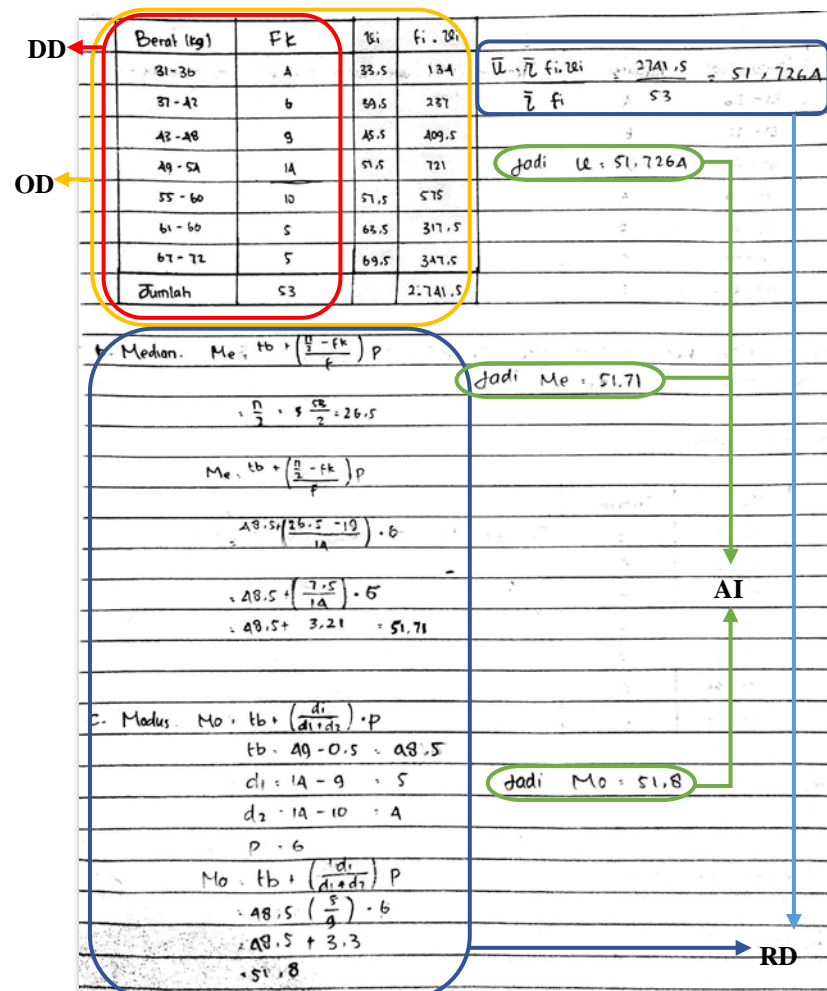 DD
OD
Berat (kg) Fk xi fi . xi
31-36 4 33,5 134
37-42 6 39,5 237
43-48 9 45,5 409,5
49-54 14 51,5 721
55-60 10 57,5 575
61-66 5 63,5 317,5
67-72 5 69,5 347,5
Jumlah 53 2.741,5
x̄ = Σ fi.xi / Σ fi = 2741,5 / 53 = 51,7264
Jadi x = 51,7264
b. Median. Me = tb + ((n/2 - fk)/f) p
= n/2 = 53/2 = 26,5
Me = tb + ((n/2 - fk)/f) p
= 48,5 + ((26,5 - 19)/14) . 6
= 48,5 + (7,5/14) . 6
= 48,5 + 3,21 = 51,71
Jadi Me = 51,71
AI
c. Modus Mo = tb + (d1/(d1+d2)) . p
tb = 49 - 0,5 = 48,5
d1 = 14 - 9 = 5
d2 = 14 - 10 = 4
p = 6
Mo = tb + (d1/(d1+d2)) p
= 48,5 (5/9) . 6
= 48,5 + 3,3
= 51,8
Jadi Mo = 51,8
RD